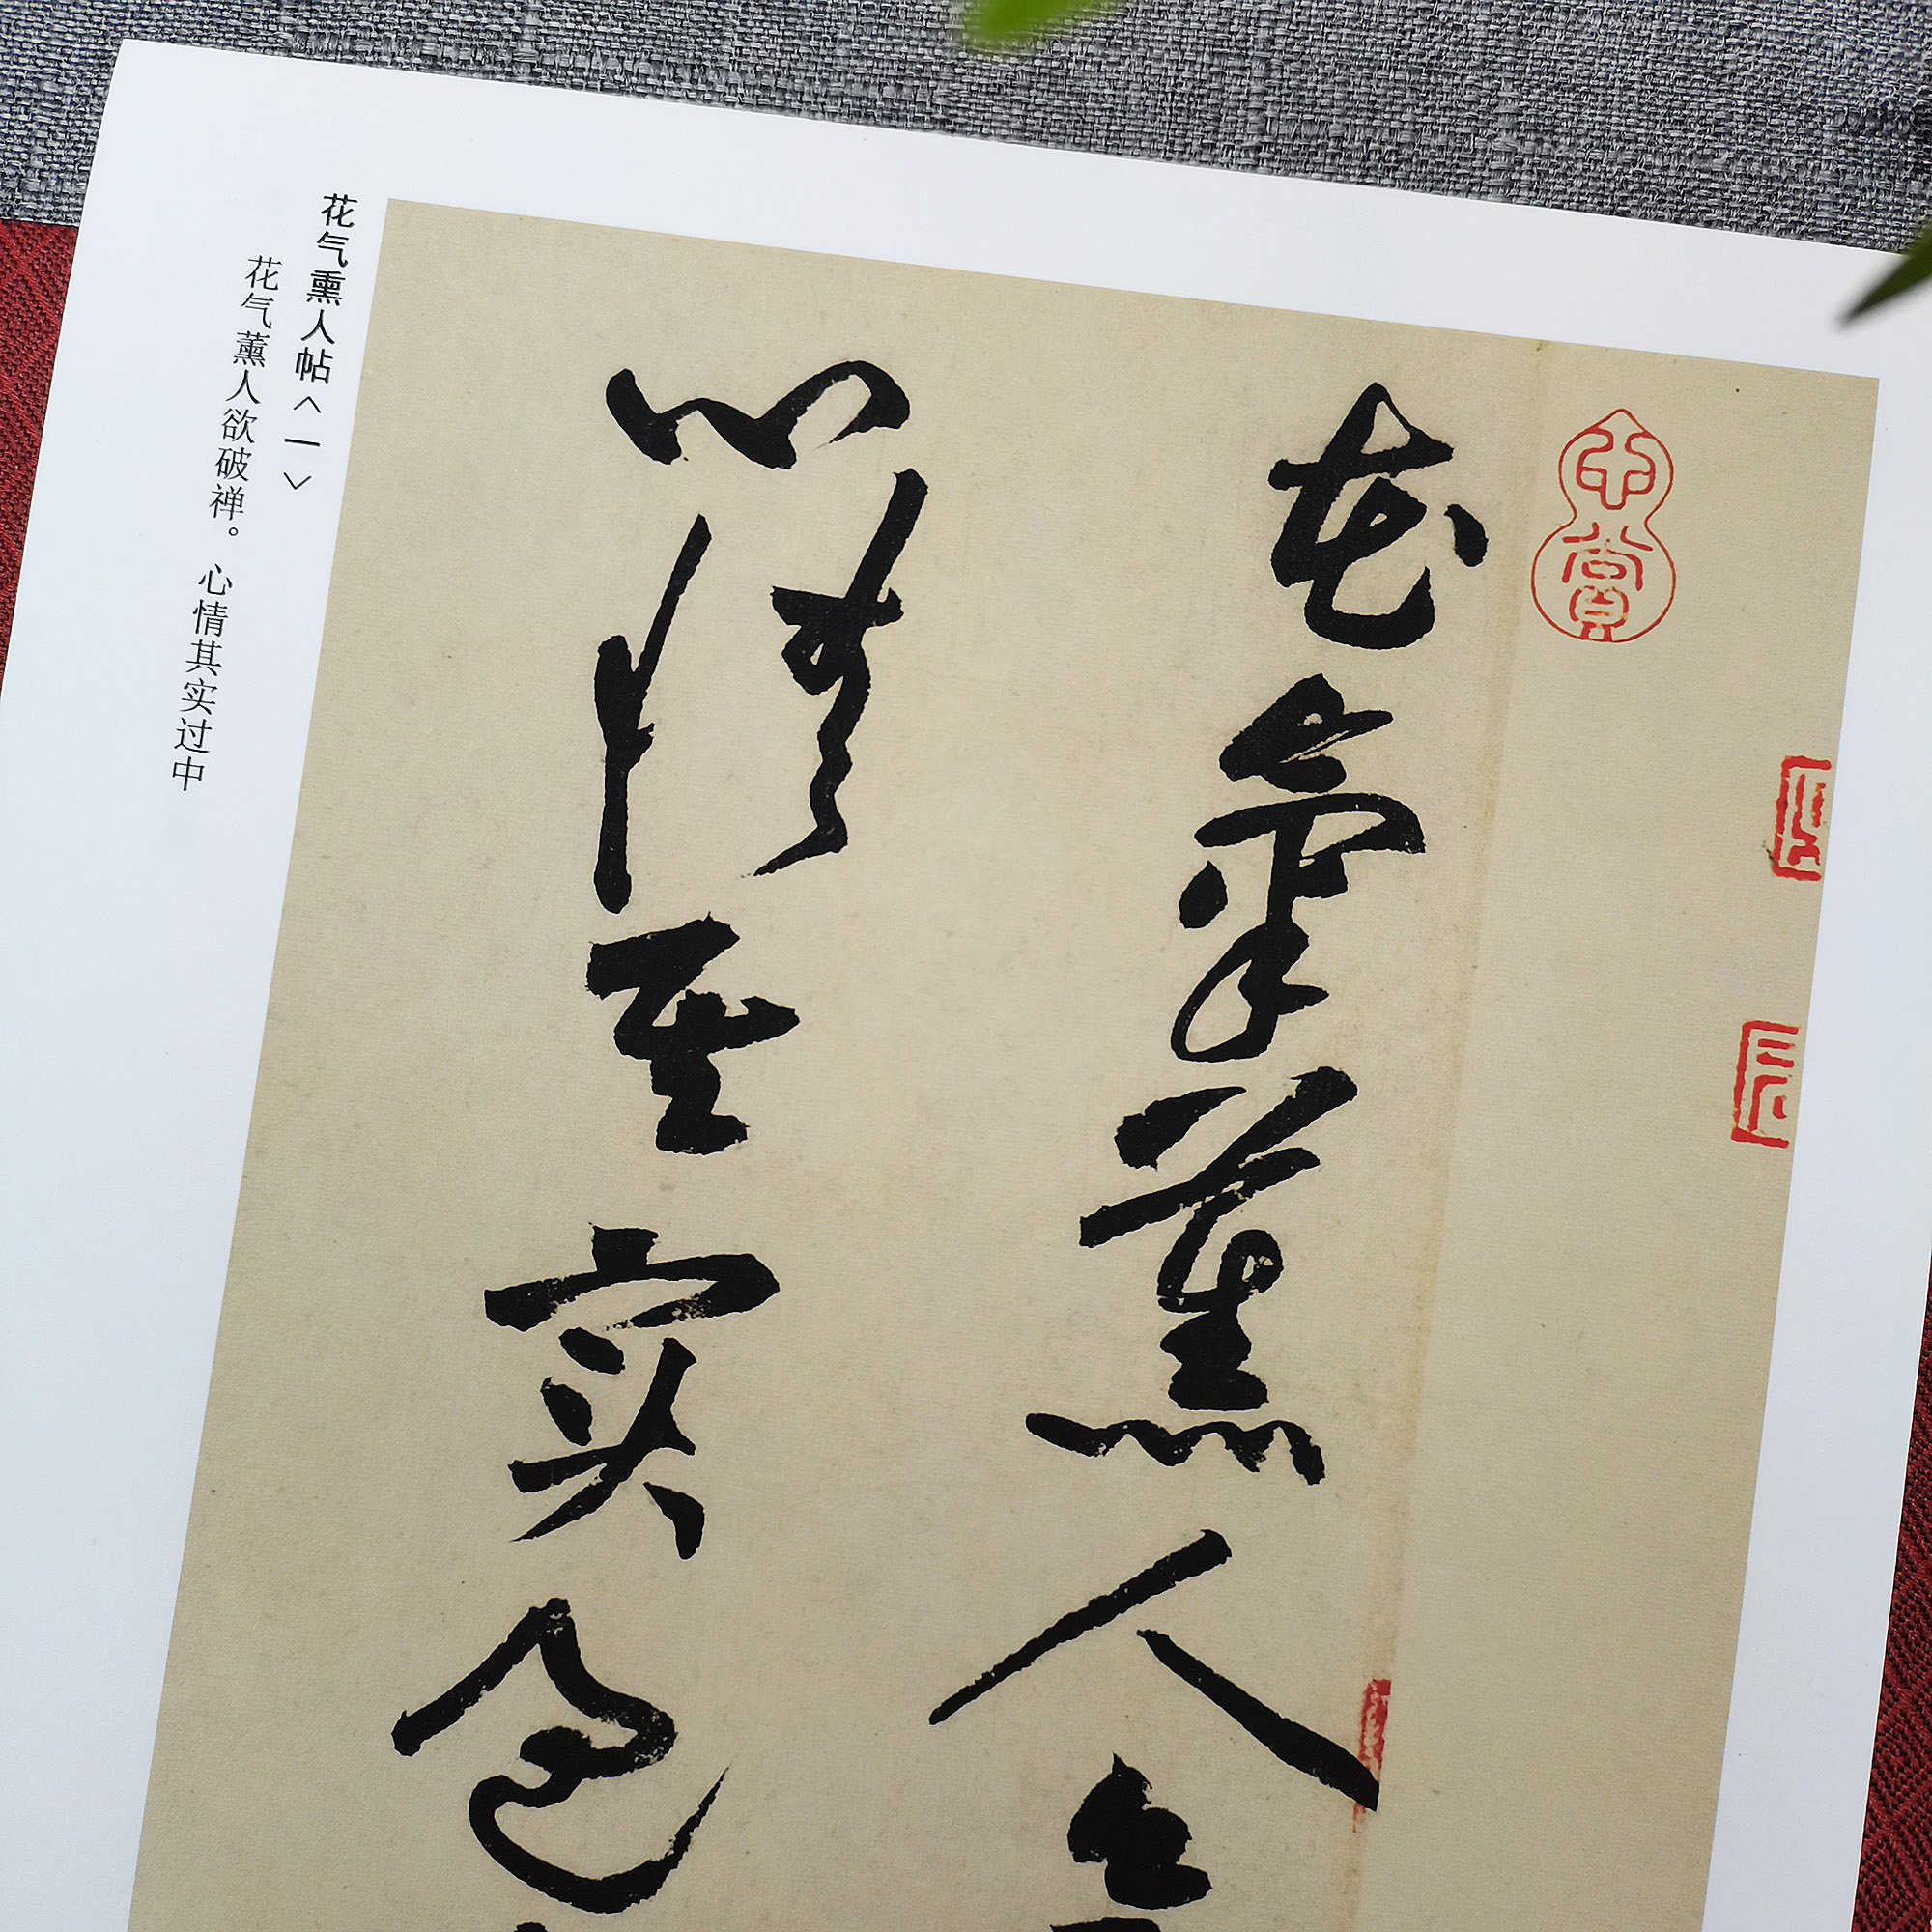 花氣薰人
心情其实過
花气熏人帖<一>
花气薰人欲破禅。心情其实过中
中賞